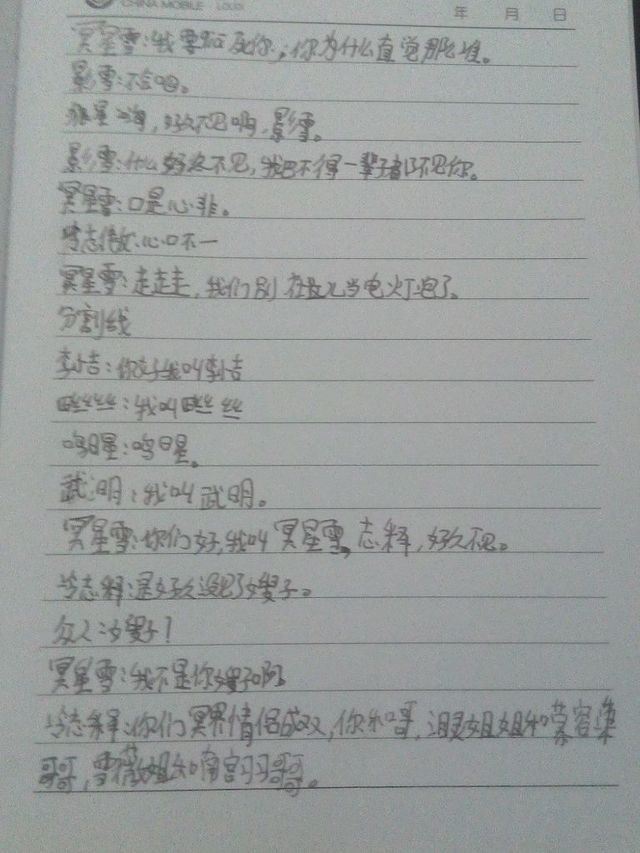 CHINA MOBILE
年 月 日
冥星雪:我要死你,你为什么直觉那么准。
影雪:不会吧。
星 嗨,好久不见啊,影雪。
影雪:什么好久不见,我巴不得一辈子都不见你。
冥星雪:口是心非。
冷志 心口不一
冥星雪:走走走,我们别在这儿当电灯泡了。
分割线
李小吉:你好我叫李小吉
丝丝:我叫 丝丝
鸣星:鸣星。
武明:我叫武明。
冥星雪:你们好,我叫冥星雪。志释,好久不见。
冷志释:是好久没见了嫂子。
众人:嫂子!
冥星雪:我不是你嫂子啊
冷志释:你们冥界情侣成双,你和哥,泪姐姐和慕容集
哥哥,雪薇姐和南宫习习哥哥。